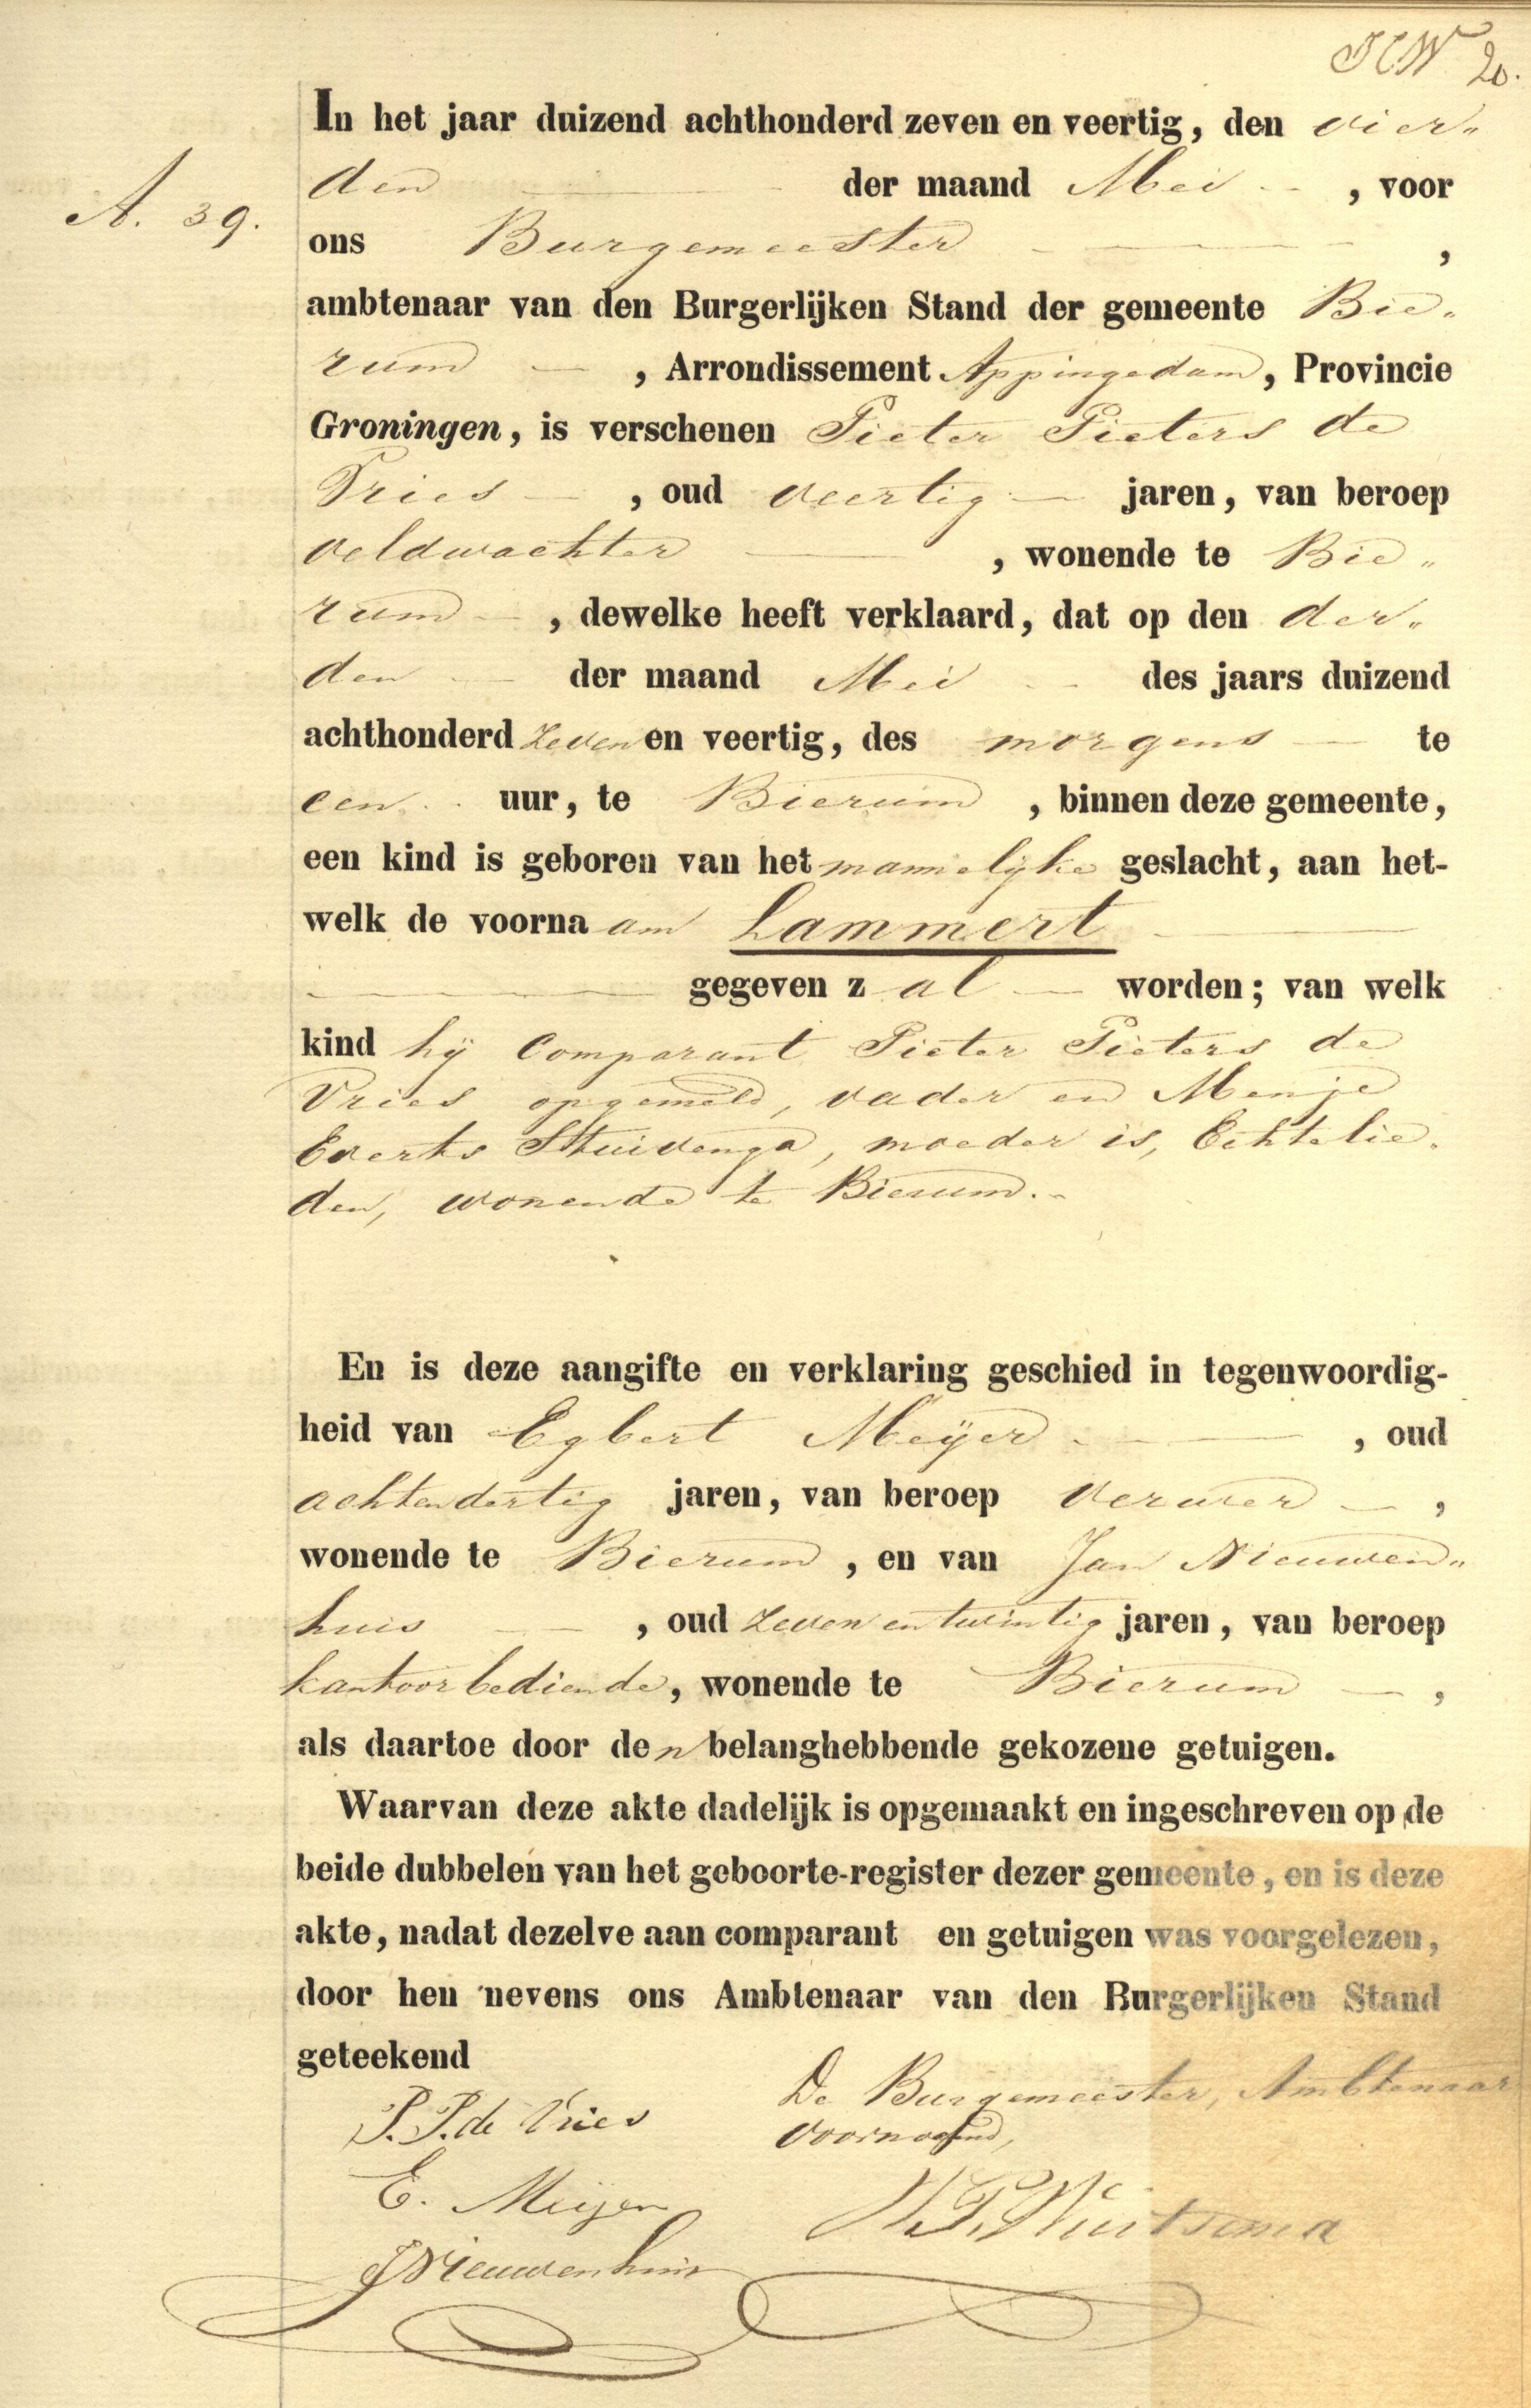 20.
In het jaar duizend achthonderd zeven en veertig, den vier„
den der maand Mei, voor
A. 39.
ons Burgemeester,
ambtenaar van den Burgerlijken Stand der gemeente Bie„
rum, Arrondissement Appingedam, Provincie
Groningen, is verschenen Pieter Pieters de
Vries, oud veertig jaren, van beroep
veldwachter, wonende te Bie„
rum, dewelke heeft verklaard, dat op den der„
den der maand Mei des jaars duizend
achthonderd zeven en veertig, des morgens te
een uur, te Bierum, binnen deze gemeente,
een kind is geboren van het mannelijke geslacht, aan het-
welk de voornaam Lammert
gegeven zal worden; van welk
kind hij Comparant Pieter Pieters de
Vries opgemeld, vader en Menje
Everts Stuivenga, moeder is, Echtelie„
den, wonende te Bierum.
En is deze aangifte en verklaring geschied in tegenwoordig-
heid van Egbert Meÿer, oud
achtendertig jaren, van beroep verwer,
wonende te Bierum, en van Jan Nieuwen„
huis, oud zeven en twintig jaren, van beroep
kantoorbediende, wonende te Bierum,
als daartoe door den belanghebbende gekozene getuigen.
Waarvan deze akte dadelijk is opgemaakt en ingeschreven op de
beide dubbelen van het geboorte-register dezer gemeente, en is deze
akte, nadat dezelve aan comparant en getuigen was voorgelezen,
door hen nevens ons Ambtenaar van den Burgerlijken Stand
geteekend
De Burgemeester, Ambtenaar
voornoemd,
P. P. de Vries
E. Meijer
JNieuwenhuis